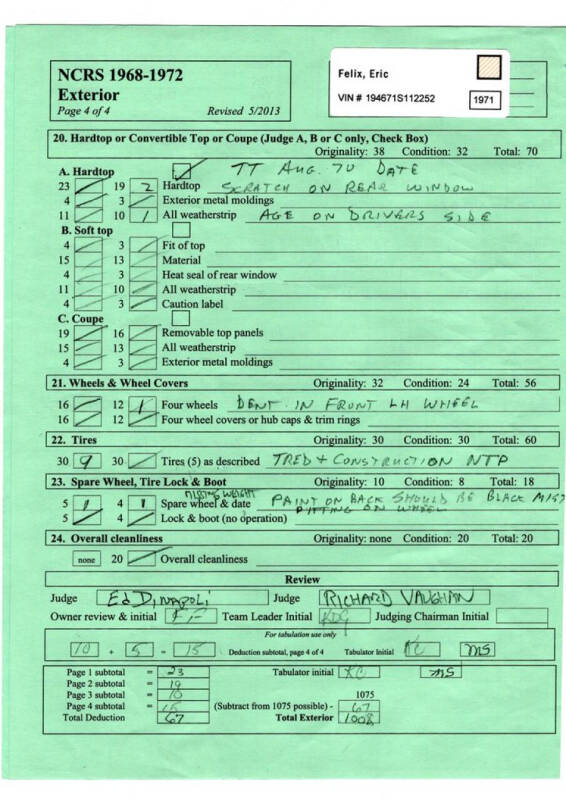 NCRS 1968-1972
Exterior
Page 4 of 4 Revised 5/2013
Felix, Eric
VIN # 194671S112252 1971
20. Hardtop or Convertible Top or Coupe (Judge A, B or C only, Check Box)
Originality: 38 Condition: 32 Total: 70
A. Hardtop TT AUG. 70 DATE
23 19 2 Hardtop SCRATCH ON REAR WINDOW
4 3 Exterior metal moldings
11 10 1 All weatherstrip AGE ON DRIVERS SIDE
B. Soft top
4 3 Fit of top
15 13 Material
4 3 Heat seal of rear window
11 10 All weatherstrip
4 3 Caution label
C. Coupe
19 16 Removable top panels
15 13 All weatherstrip
4 3 Exterior metal moldings
21. Wheels & Wheel Covers Originality: 32 Condition: 24 Total: 56
16 12 1 Four wheels DENT IN FRONT LH WHEEL
16 12 Four wheel covers or hub caps & trim rings
22. Tires Originality: 30 Condition: 30 Total: 60
30 9 30 Tires (5) as described TRED + CONSTRUCTION NTP
23. Spare Wheel, Tire Lock & Boot Originality: 10 Condition: 8 Total: 18
WEIGHT
5 1 4 1 Spare wheel & date PAINT ON BACK SHOULD BE BLACK
5 4 Lock & boot (no operation) PITTING ON WHEEL
24. Overall cleanliness Originality: none Condition: 20 Total: 20
none 20 Overall cleanliness
Review
Judge Ed DiNapoli Judge RICHARD VAUGHAN
Owner review & initial Team Leader Initial KDG Judging Chairman Initial
For tabulation use only
10 + 5 = 15 Deduction subtotal, page 4 of 4 Tabulator Initial KC MS
Page 1 subtotal = 23 Tabulator initial KC MS
Page 2 subtotal = 19
Page 3 subtotal = 10 1075
Page 4 subtotal = 15 (Subtract from 1075 possible) - 67
Total Deduction = 67 Total Exterior 1008